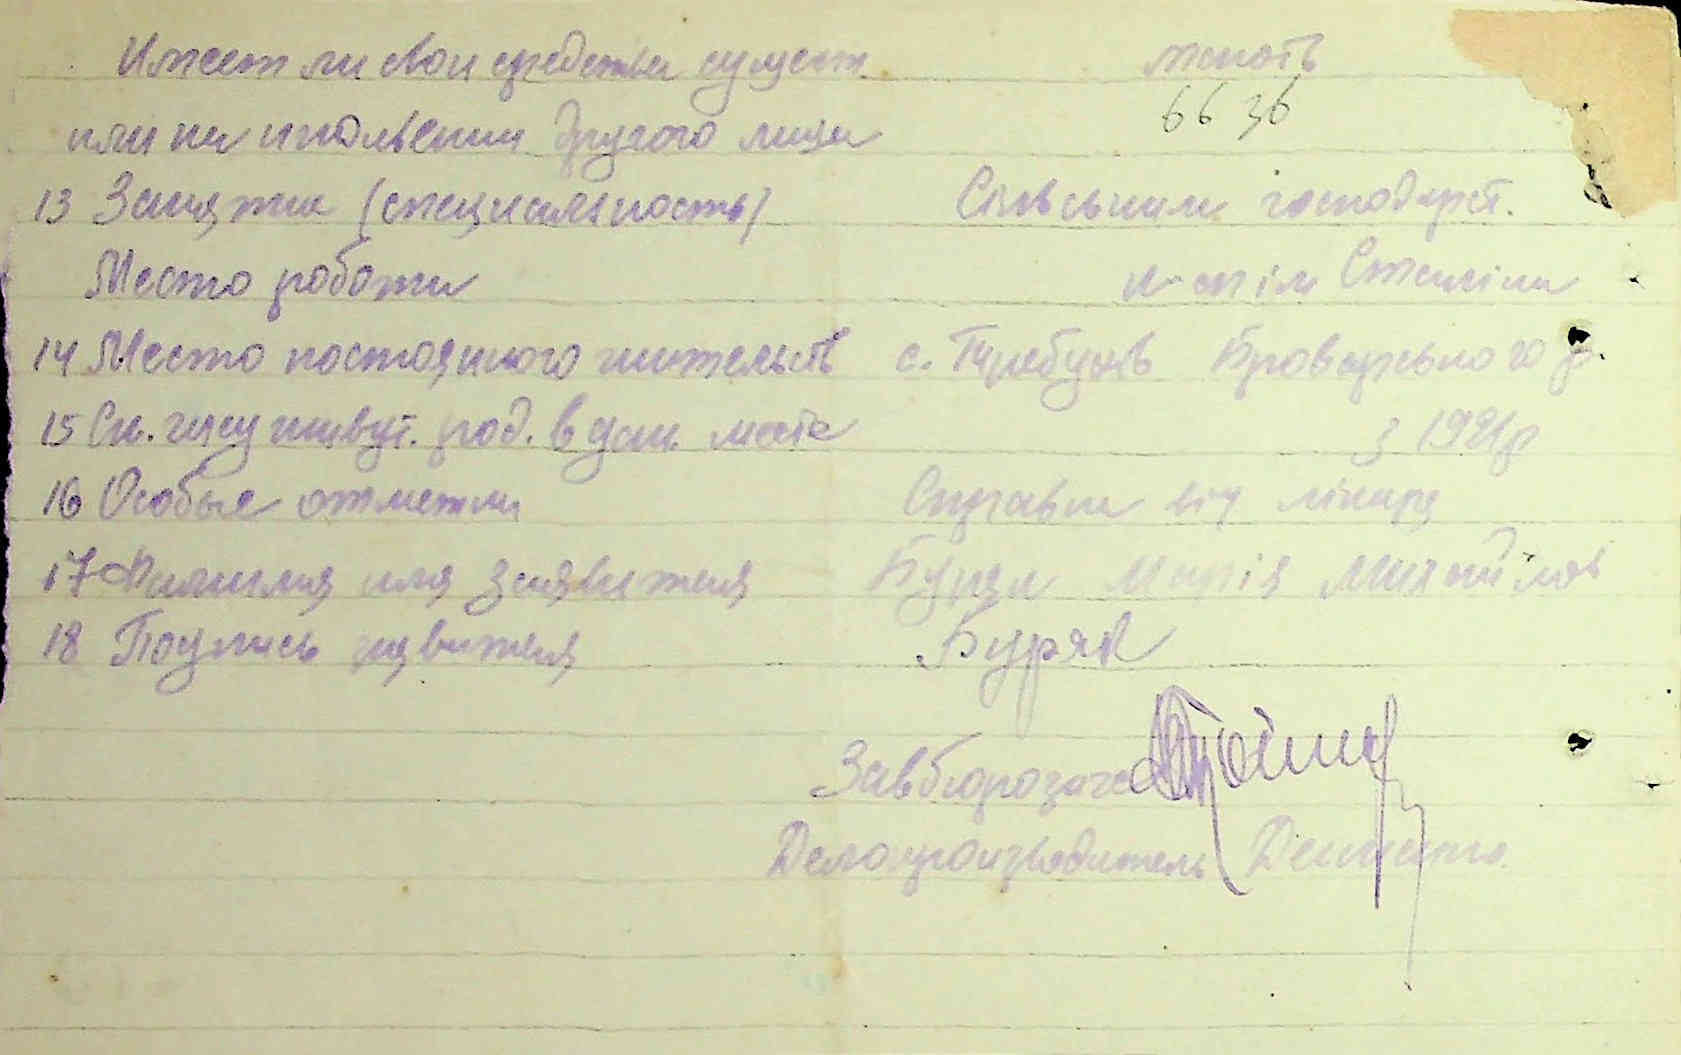 Имеет ли свои средства сущест.
или на иждивении другого лица
66 36
13 Занятие (специальность) Сільським господарст.
Место работи к-сп ім Сталіна
14 Место постоянного жительств с. Требухів Броварського р.
15 См. числ живут. род. в дан. месте з 1921р
16 Особые отметки Справка від лікаря
17 Фамилия имя заявителя Буряк Марія Михайлов
18 Подпись заявителя Буряк
Завбюрозагс
Делопроизводитель